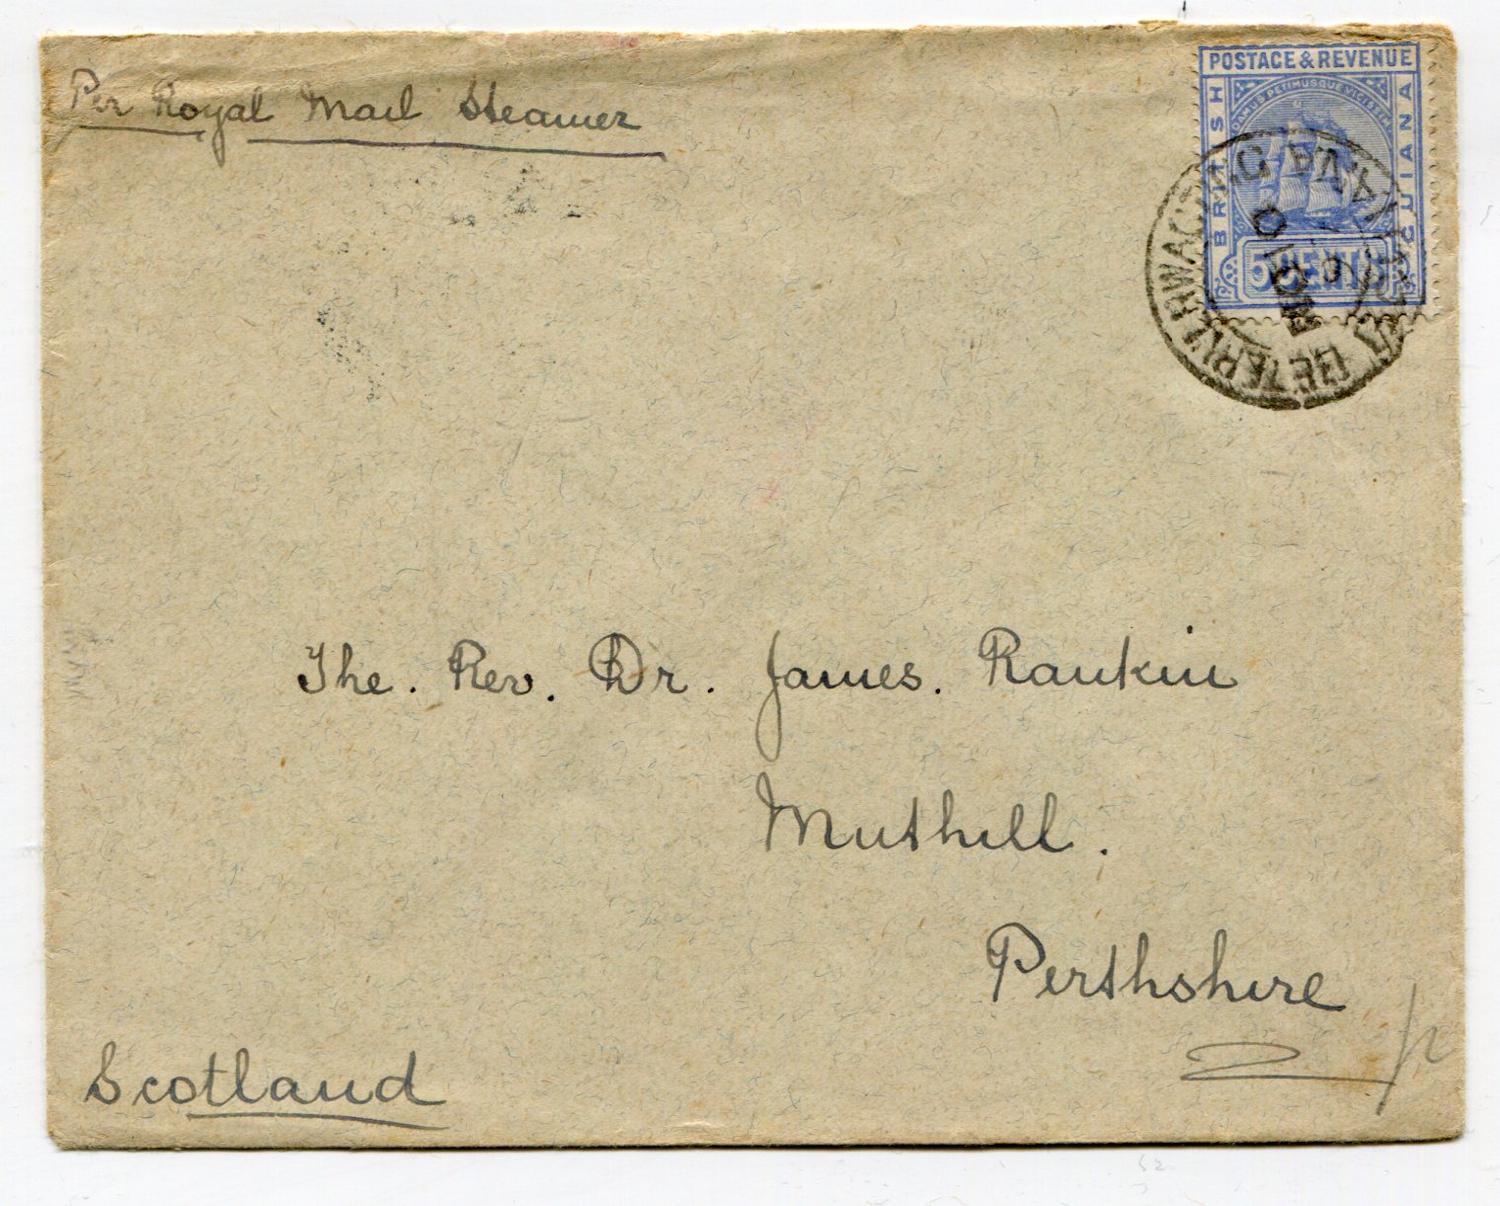 Per Royal Mail Steamer
POSTAGE & REVENUE
BRITISH
GUIANA
DAMUS PETIMUSQUE VICISSIM
5 CENTS
BETERVERWAGTING
The. Rev. Dr. James. Rankin
Muthill.
Perthshire
Scotland